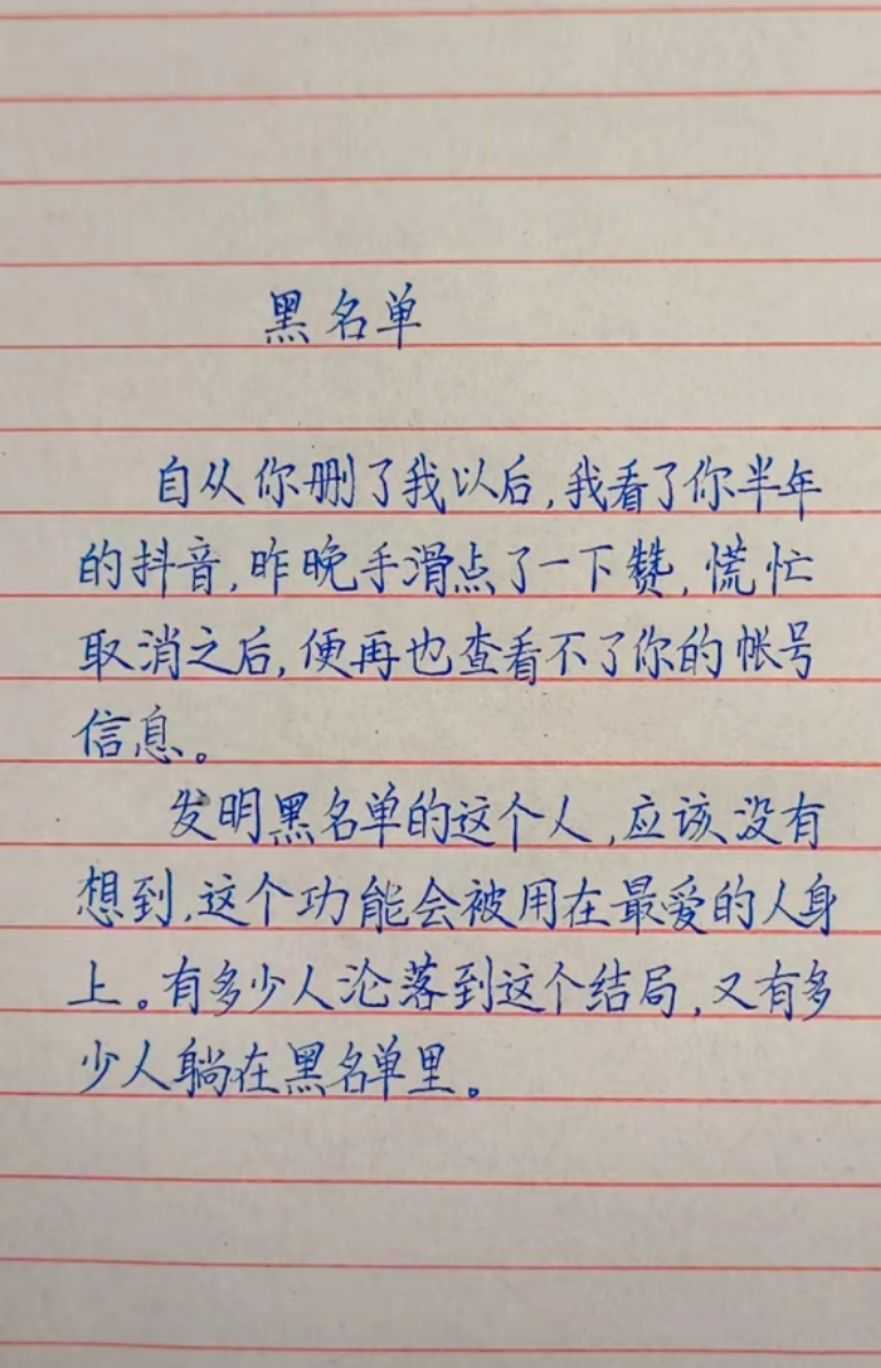 黑名单
自从你删了我以后,我看了你半年
的抖音,昨晚手滑点了一下赞,慌忙
取消之后,便再也查看不了你的帐号
信息。
发明黑名单的这个人,应该没有
想到,这个功能会被用在最爱的人身
上。有多少人沦落到这个结局,又有多
少人躺在黑名单里。